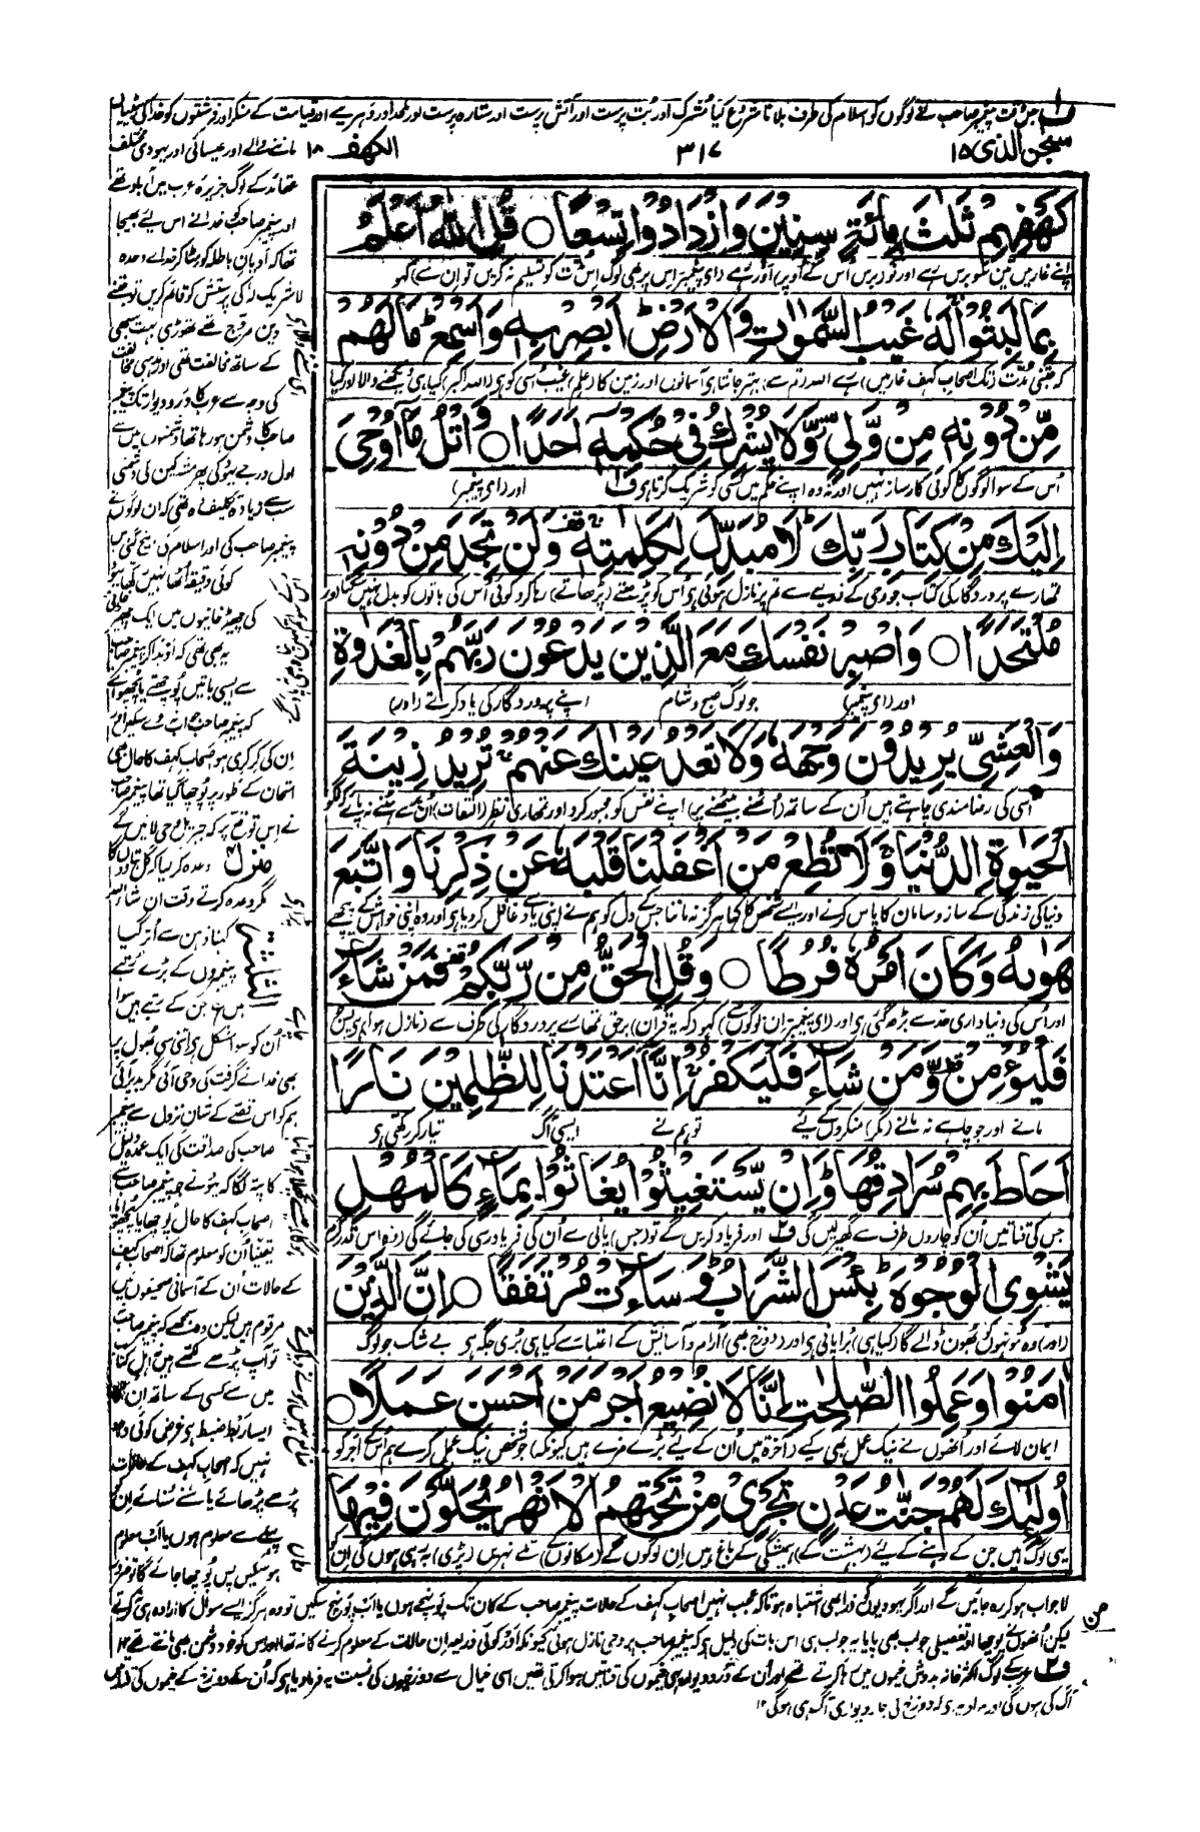 ف۱ جس وقت پیغمبر صاحب نے لوگوں کو اسلام کی طرف بلانا شروع کیا مشرک اور بت پرست اور آتش پرست اور ستارہ پرست اور ملحد اور دہریے اور قیامت کے منکر اور فرشتوں کو خدا کی بیٹیاں
سبحن الذی ۱۵
۳۱۷
الکھف ۱۸
كَهْفِهِمْ ثَلٰثَ مِائَةٍ سِنِيْنَ وَازْدَادُوْا تِسْعًا ○ قُلِ اللّٰهُ اَعْلَمُ
اپنے غار میں تین سو برس رہے اور نو برس اس کے اوپر اور رہے (اے پیغمبر اس پر بھی لوگ اس مدت کو تسلیم نہ کریں تو ان سے) کہو
بِمَا لَبِثُوْا لَهٗ غَيْبُ السَّمٰوٰتِ وَالْاَرْضِ اَبْصِرْ بِهٖ وَاَسْمِعْ مَا لَهُمْ
کہ جتنی مدت (تک اصحاب کہف غار میں) رہے اللہ (تم سے) بہتر جانتا ہی آسمانوں اور زمین کا (علم) غیب اسی کو ہی (اللہ اکبر) کیا ہی دیکھنے والا اور کیا
مِّنْ دُوْنِهٖ مِنْ وَّلِيٍّ وَّلَا يُشْرِكُ فِيْ حُكْمِهٖ اَحَدًا ○ وَاتْلُ مَا اُوْحِيَ
اُس کے سوا لوگوں کا کوئی کارساز نہیں اور نہ وہ اپنے حکم میں کسی کو شریک کرتا ہی ف۱ اور (اے پیغمبر)
اِلَيْكَ مِنْ كِتَابِ رَبِّكَ لَا مُبَدِّلَ لِكَلِمٰتِهٖ وَلَنْ تَجِدَ مِنْ دُوْنِهٖ
تمھارے پروردگار کی کتاب جو وحی کے ذریعے سے تم پر نازل ہوئی ہی اُس کو پڑھتے (پڑھاتے) رہا کرو کوئی اُس کی باتوں کو بدل نہیں سکتا اور
مُلْتَحَدًا ○ وَاصْبِرْ نَفْسَكَ مَعَ الَّذِيْنَ يَدْعُوْنَ رَبَّهُمْ بِالْغَدٰوةِ
اور (اے پیغمبر) جو لوگ صبح و شام اپنے پروردگار کی یاد کرتے (اور)
وَالْعَشِيِّ يُرِيْدُوْنَ وَجْهَهٗ وَلَا تَعْدُ عَيْنٰكَ عَنْهُمْ تُرِيْدُ زِيْنَةَ
اسی کی رضامندی چاہتے ہیں اُن کے ساتھ (اُٹھنے بیٹھنے پر) اپنے نفس کو مجبور کرو اور تمھاری نظر (التفات) اُن سے ہٹنے نہ پائے کہ لگو
الْحَيٰوةِ الدُّنْيَا وَلَا تُطِعْ مَنْ اَغْفَلْنَا قَلْبَهٗ عَنْ ذِكْرِنَا وَاتَّبَعَ
دنیا کی زندگی کے ساز و سامان کا پاس کرنے اور ایسے شخص کا کہا ہرگز نہ ماننا جس کے دل کو ہم نے اپنی یاد سے غافل کر دیا ہی اور وہ اپنی خواہش کے پیچھے
هَوٰىهُ وَكَانَ اَمْرُهٗ فُرُطًا ○ وَقُلِ الْحَقُّ مِنْ رَّبِّكُمْ فَمَنْ شَآءَ
اور اُس کی دنیا داری حد سے بڑھ گئی ہی اور (اے پیغمبر ان لوگوں سے) کہو کہ (یہ قرآن) برحق تمھارے پروردگار کی طرف سے (نازل ہوا) ہی پس
فَلْيُؤْمِنْ وَّمَنْ شَآءَ فَلْيَكْفُرْ اِنَّا اَعْتَدْنَا لِلظّٰلِمِيْنَ نَارًا
مانے اور جو چاہے نہ مانے (مگر) منکروں کے لیے تو ہم نے ایسی آگ تیار کر رکھی ہی
اَحَاطَ بِهِمْ سُرَادِقُهَا وَاِنْ يَّسْتَغِيْثُوْا يُغَاثُوْا بِمَآءٍ كَالْمُهْلِ
جس کی قناتیں اُن کو چاروں طرف سے گھیر لیں گی ف۲ اور فریاد کریں گے تو (جس) پانی سے اُن کی فریاد رسی کی جائے گی (وہ اس قدر گرم
يَشْوِي الْوُجُوْهَ بِئْسَ الشَّرَابُ وَسَآءَتْ مُرْتَفَقًا ○ اِنَّ الَّذِيْنَ
(اور) وہ مونہوں کو بھون ڈالے گا (کیا ہی) بُرا پانی ہی اور (دوزخ بھی) آرام و آسایش کے اعتبار سے کیا ہی بُری جگہ ہی بے شک جو لوگ
اٰمَنُوْا وَعَمِلُوا الصّٰلِحٰتِ اِنَّا لَا نُضِيْعُ اَجْرَ مَنْ اَحْسَنَ عَمَلًا ○
ایمان لائے اور اُنھوں نے نیک عمل بھی کیے (آخرۃ میں اُن کے لیے بڑے مزے ہیں کیونکہ) جو شخص نیک عمل کرے ہم اُس کے اجر کو
اُولٰٓئِكَ لَهُمْ جَنّٰتُ عَدْنٍ تَجْرِيْ مِنْ تَحْتِهِمُ الْاَنْهٰرُ يُحَلَّوْنَ فِيْهَا
یہی لوگ ہیں جن کے رہنے کے لیے (بہشت کے) ہمیشگی کے باغ ہیں ان لوگوں کے (مکانوں کے) تلے نہریں (پڑی) بہ رہی ہوں گی ان کو
ماننے والے اور عیسائی اور یہودی مختلف
عقائد کے لوگ جزیرہ عرب میں آباد تھے
اور پیغمبر صاحب کو خدا نے اس لئے بھیجا
تھا کہ ادیان باطلہ کو ہٹا کر خدائے وحدہ
لا شریک لہ کی پرستش کو قائم کریں تو جتنے
دین مروج تھے تھوڑی بہت سبھی
کے ساتھ مخالفت تھی اور مذہبی مخالفت
کی وجہ سے عرب کا در و دیوار تک پیغمبر
صاحب کا دشمن ہو رہا تھا دشمنوں میں سے
اول درجے یہود کی پھر مشرکین کی دشمنی
سب سے زیادہ تکلیف دہ تھی کہ ان لوگوں نے
پیغمبر صاحب کی اور اسلام کی بیخ کنی میں
کوئی دقیقہ اُٹھا نہیں رکھا یہود
کی چھیڑ خانیوں میں ایک چھیڑ خانی
یہ بھی تھی کہ
سے ایسی باتیں پوچھتے یا پچھواتے
کہ پیغمبر صاحب
ان کی کرکری ہو اصحاب کہف کا حال بھی
امتحان کے طور پر پوچھا گیا تھا پیغمبر صاحب
نے اس توقع پر کہ جبریل وحی لائیں گے
وعدہ کر لیا کہ کل بتا دوں گا
منزل ۴
مگر وعدہ کرتے وقت ان شاء اللہ
کہنا ذہن سے اُتر گیا
پیغمبروں کے بڑے رتبے
ہیں جن کے رتبے ہیں سوا
اُن کو سوا مشکل ہی اتنی سی بھول پر
بھی خدا نے گرفت کی وحی آئی مگر بدیر آئی
ہم کو اس قصے کے شان نزول سے پیغمبر
صاحب کی صداقت کی ایک عمدہ دلیل
کا پتہ لگا کہ یہود نے جو پیغمبر صاحب سے
اصحاب کہف کا حال پوچھا یا پچھوایا
یقیناً اُن کو معلوم تھا کہ اصحاب کہف
کے حالات اُن کے آسمانی صحیفوں میں
مرقوم ہیں لیکن وہ سمجھے کہ پیغمبر صاحب
نہ تو آپ پڑھے لکھے ہیں نہ اہل کتاب
میں سے کسی کے ساتھ ان کا
ایسا ربط ضبط ہی غرض کوئی وجہ
نہیں کہ اصحاب کہف کے حالات
پڑھے پڑھائے یا سنے سنائے ان کو
پہلے سے معلوم ہوں یا اب معلوم
ہو سکیں پس پوچھا جائے گا تو ضرور
النصف
لا جواب ہو کر رہ جائیں گے اور اگر یہودیوں کو ذرا بھی اشتباہ ہوتا کہ عجب نہیں اصحاب کہف کے حالات پیغمبر صاحب کے کان تک پہنچے ہوں یا اب پہنچ سکیں تو وہ ہرگز ایسے سوال کا ارادہ ہی نہ کرتے
لیکن اُنھوں نے پوچھا اور تفصیلی جواب بھی پایا یہ جواب ہی اس بات کی دلیل ہی کہ پیغمبر صاحب پر وحی نازل ہوئی کیونکہ اور کوئی ذریعہ ان حالات کے معلوم کرنے کا نہ تھا اور اس کو خود دشمن بھی مانتے تھے ۱۲
ف۲ عرب کے لوگ اکثر خانہ بدوش خیموں میں رہا کرتے تھے اور اُن کے در و دیوار یہی خیموں کی قناتیں ہوا کرتی تھیں اسی خیال سے دوزخیوں کی نسبت یہ فرما دیا ہی کہ اُن کے دوزخ کے خیموں کی قناتیں
آگ کی ہوں گی اور مراد یہ ہی کہ دوزخ کی چار دیواری آگ ہی ہوگی ۱۲